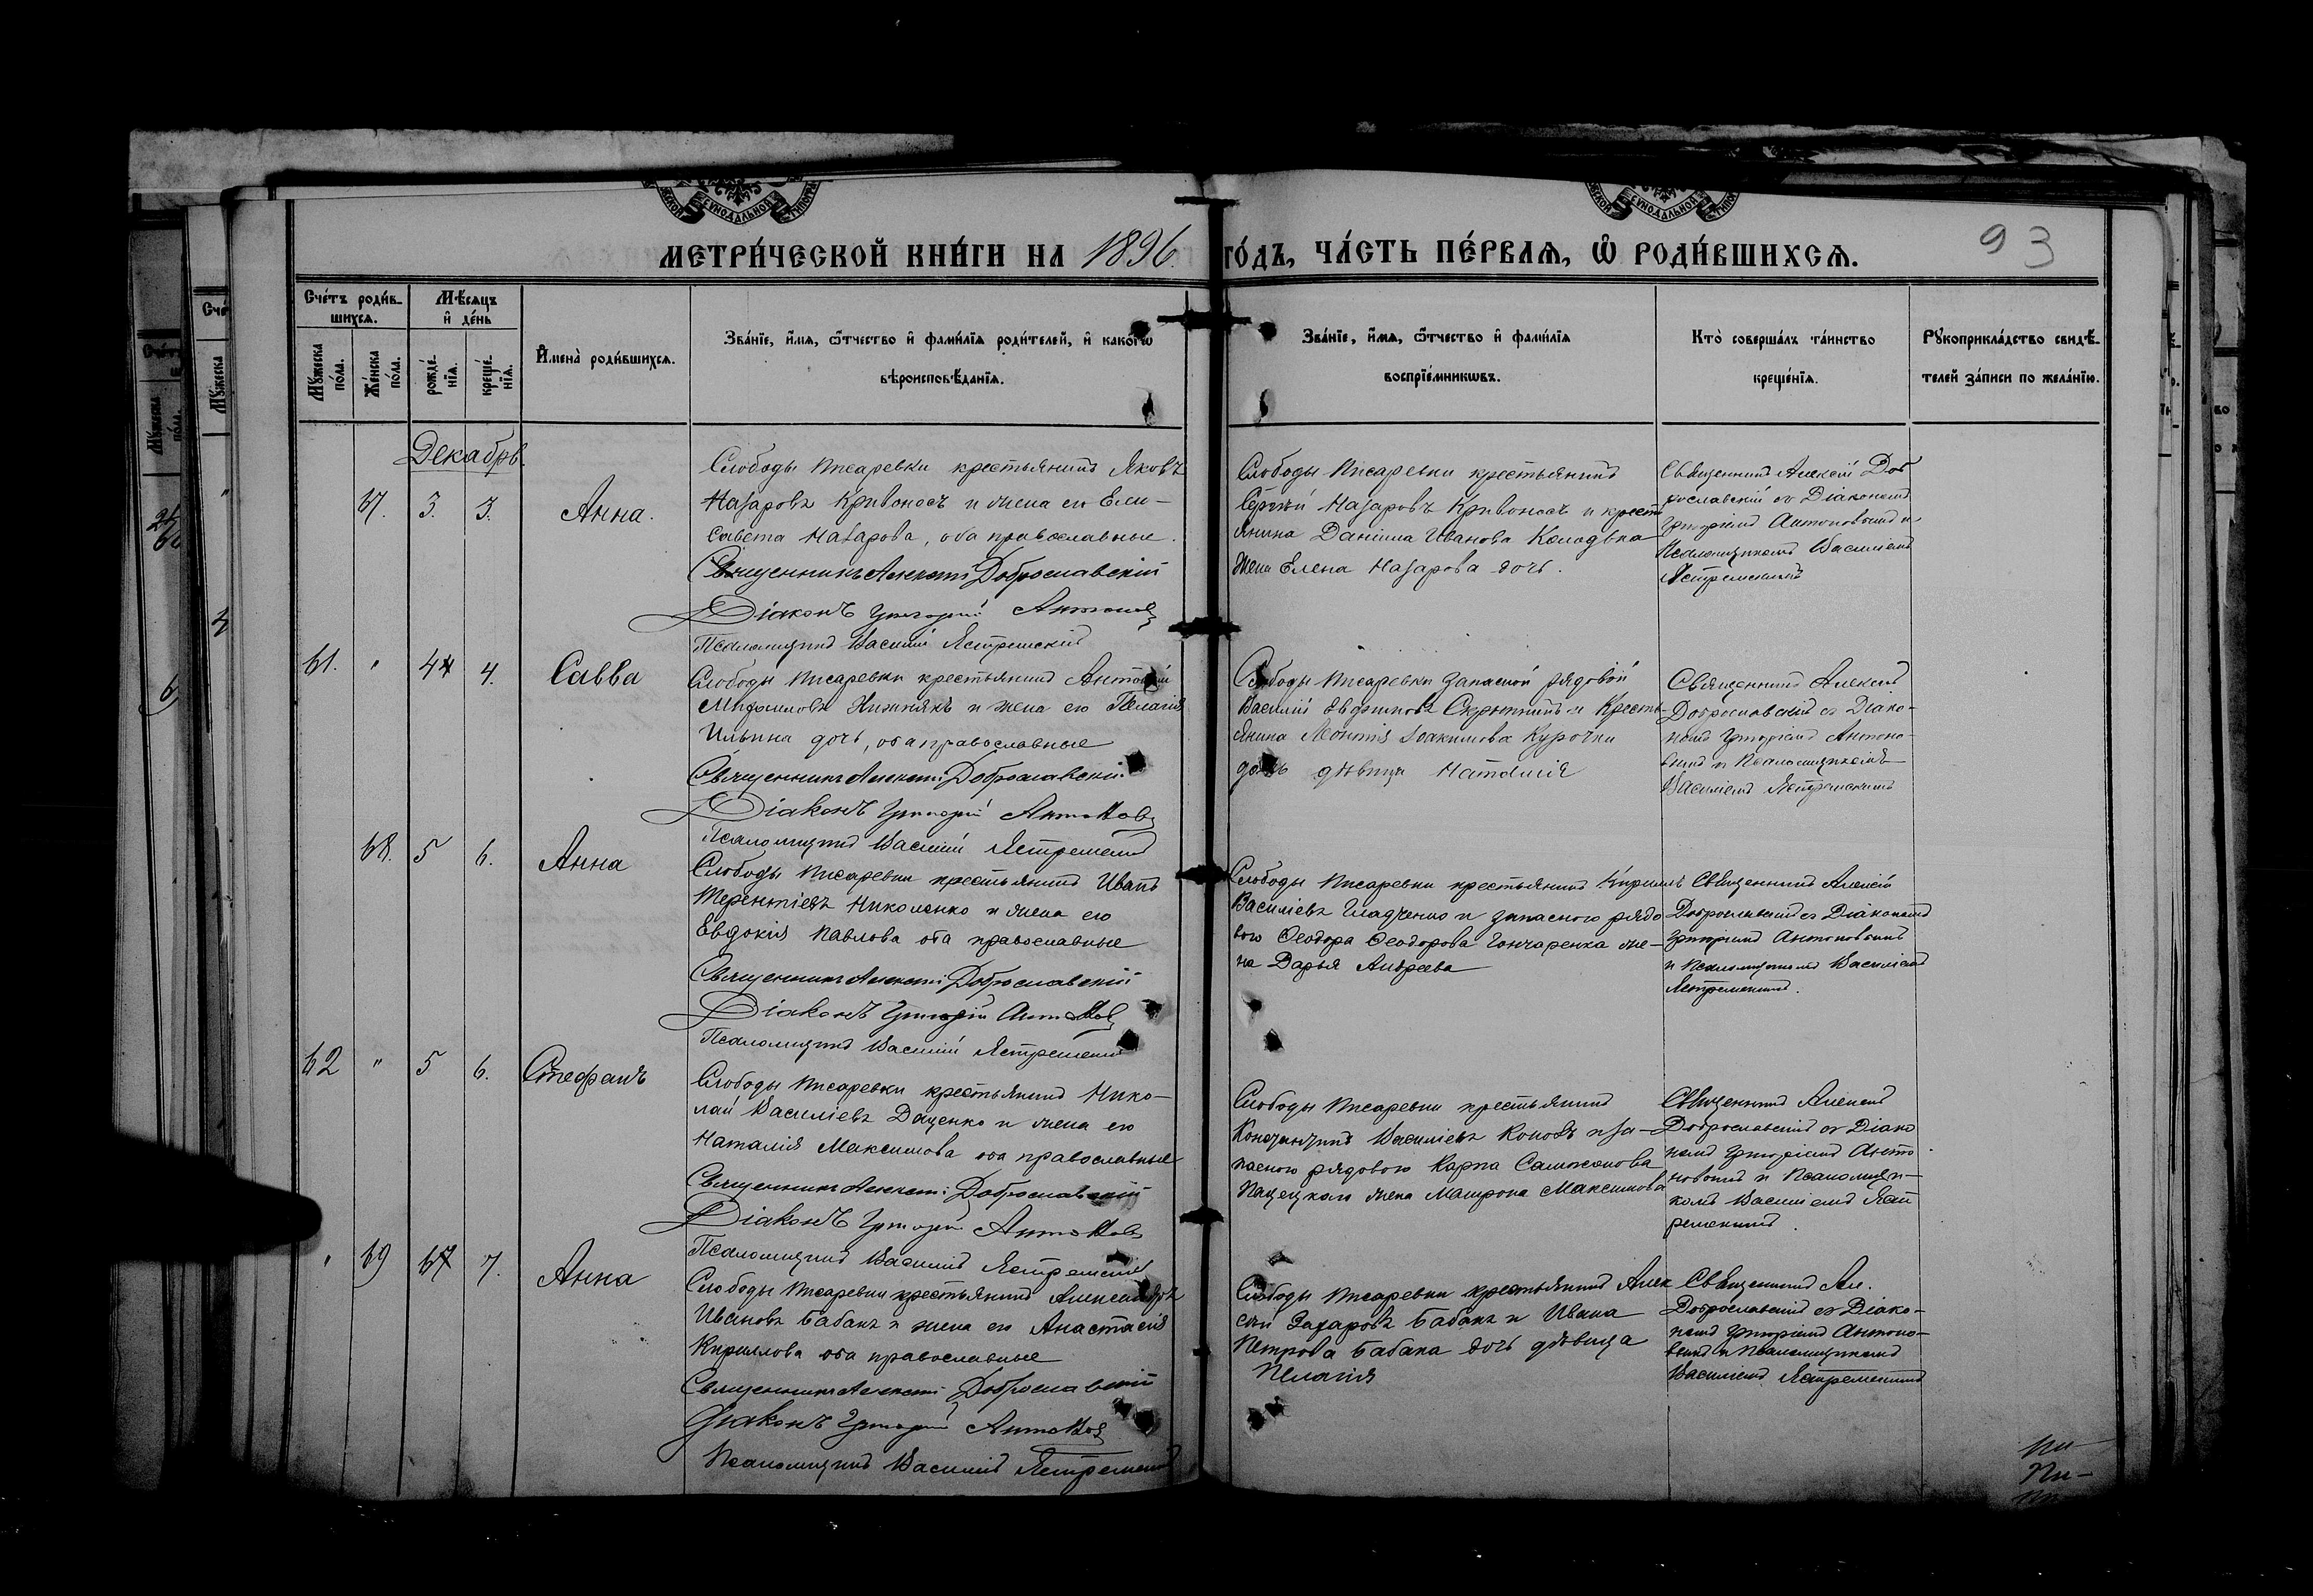 МЕТРИ́ЧЕСКОЙ КНИ́ГИ НА 1896.
ГО́ДЪ, ЧА́СТЬ ПЕ́РВАѦ, Ѡ҆ РОДИ́ВШИХСѦ.
93
Сче́тъ роди́в-
шихсѧ.
Мꙋ́жеска
по́ла.
Же́нска
по́ла.
Мѣ́сѧцъ
и҆ де́нь
рожде́-
нїѧ.
креще́-
нїѧ.
И҆мена̀ роди́вшихсѧ.
Зва́нїе, и҆́мѧ, ѻ҆́тчество и҆ фами́лїѧ роди́телей, и҆ како́гѡ
вѣроисповѣ́данїѧ.
Зва́нїе, и҆́мѧ, ѻ҆́тчество и҆ фами́лїѧ
воспрїе́мникѡвъ.
Кто̀ соверша́лъ та́инство
креще́нїѧ.
Рꙋкоприкла́дство свидѣ́-
телей за́писи по жела́нїю.
Декабрь.
67. 3. 3. Анна.
Слободы Писаревки крестьянинъ Яковъ
Назаровъ Кривоносъ и жена его Ели-
савета Назарова, оба православные.
Священникъ Алексій Доброславскій
Діаконъ Григорій Антоновъ
Псаломщикъ Василій Ястремскій
Слободы Писаревки крестьянинъ
Сергѣй Назаровъ Кривоносъ и кресть
янина Даніила Иванова Колодька
жена Елена Назарова дочь.
Священникъ Алексій Доб
рославскій съ Діакономъ
Григоріемъ Антоновымъ и
Псаломщикомъ Василіемъ
Ястремскимъ
61. " 4 4. Савва
Слободы Писаревки крестьянинъ Антоній
жена его Пелагія
Ильина дочь, оба православные
Священникъ Алексій Доброславскій
Діаконъ Григорій Антоновъ
Псаломщикъ Василій Ястремскій
Слободы Писаревки запасной рядовой
Василій и кресть-
янина Леонтія Іоакимова Курочки
дочь дѣвица Наталія
Священникъ Алексій
Доброславскій съ Діако-
номъ Григоріемъ Антоно-
вымъ и Псаломщикомъ
Василіемъ Ястремскимъ
68. 5 6. Анна
Слободы Писаревки крестьянинъ Иванъ
Терентіевъ Николенко и жена его
Евдокія Павлова оба православные
Священникъ Алексій Доброславскій
Діаконъ Григорій Антоновъ
Псаломщикъ Василій Ястремскій
Слободы Писаревки крестьянинъ Кириллъ
Василіевъ Гладченко и запасного рядо
вого Ѳеодора Ѳеодорова Гончаренка же-
на Дарья Андреева
Священникъ Алексій
Доброславскій съ Діакономъ
Григоріемъ Антоновымъ
и Псаломщикомъ Василіемъ
Ястремскимъ.
62 " 5 6. Стефанъ
Слободы Писаревки крестьянинъ Нико-
лай Василіевъ Даценко и жена его
Наталія Максимова оба православные
Священникъ Алексій Доброславскій
Діаконъ Григорій Антоновъ
Псаломщикъ Василій Ястремскій
Слободы Писаревки крестьянинъ
Константинъ Василіевъ и за-
пасного рядового Карпа Самсонова
жена Матрона Максимова
Священникъ Алексій
Доброславскій съ Діако
номъ Григоріемъ Анто
новымъ и Псаломщи-
комъ Василіемъ Яст
ремскимъ.
" 69 7. Анна
Слободы Писаревки крестьянинъ Александръ
Ивановъ Бабакъ и жена его Анастасія
Кириллова оба православные
Священникъ Алексій Доброславскій
Діаконъ Григорій Антоновъ
Псаломщикъ Василій Ястремскій
Слободы Писаревки крестьянинъ Алек
сѣй Захаровъ Бабакъ и Ивана
Петрова Бабака дочь дѣвица
Пелагія
Священникъ Ал.
Доброславскій съ Діако-
номъ Григоріемъ Антоно-
вымъ и Псаломщикомъ
Василіемъ Ястремскимъ